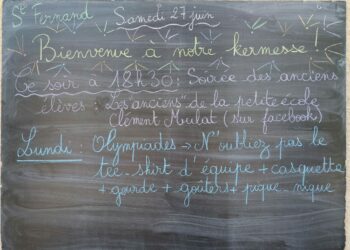 St Fernand Samedi 27 juin
Bienvenue à notre kermesse !
Ce soir à 18h30 : Soirée des anciens
élèves : "Les anciens" de la petite école
Clément Mulat (sur facebook)
Lundi : Olympiades → N'oubliez pas le
tee-shirt d'équipe + casquette
+ gourde + goûters + pique-nique